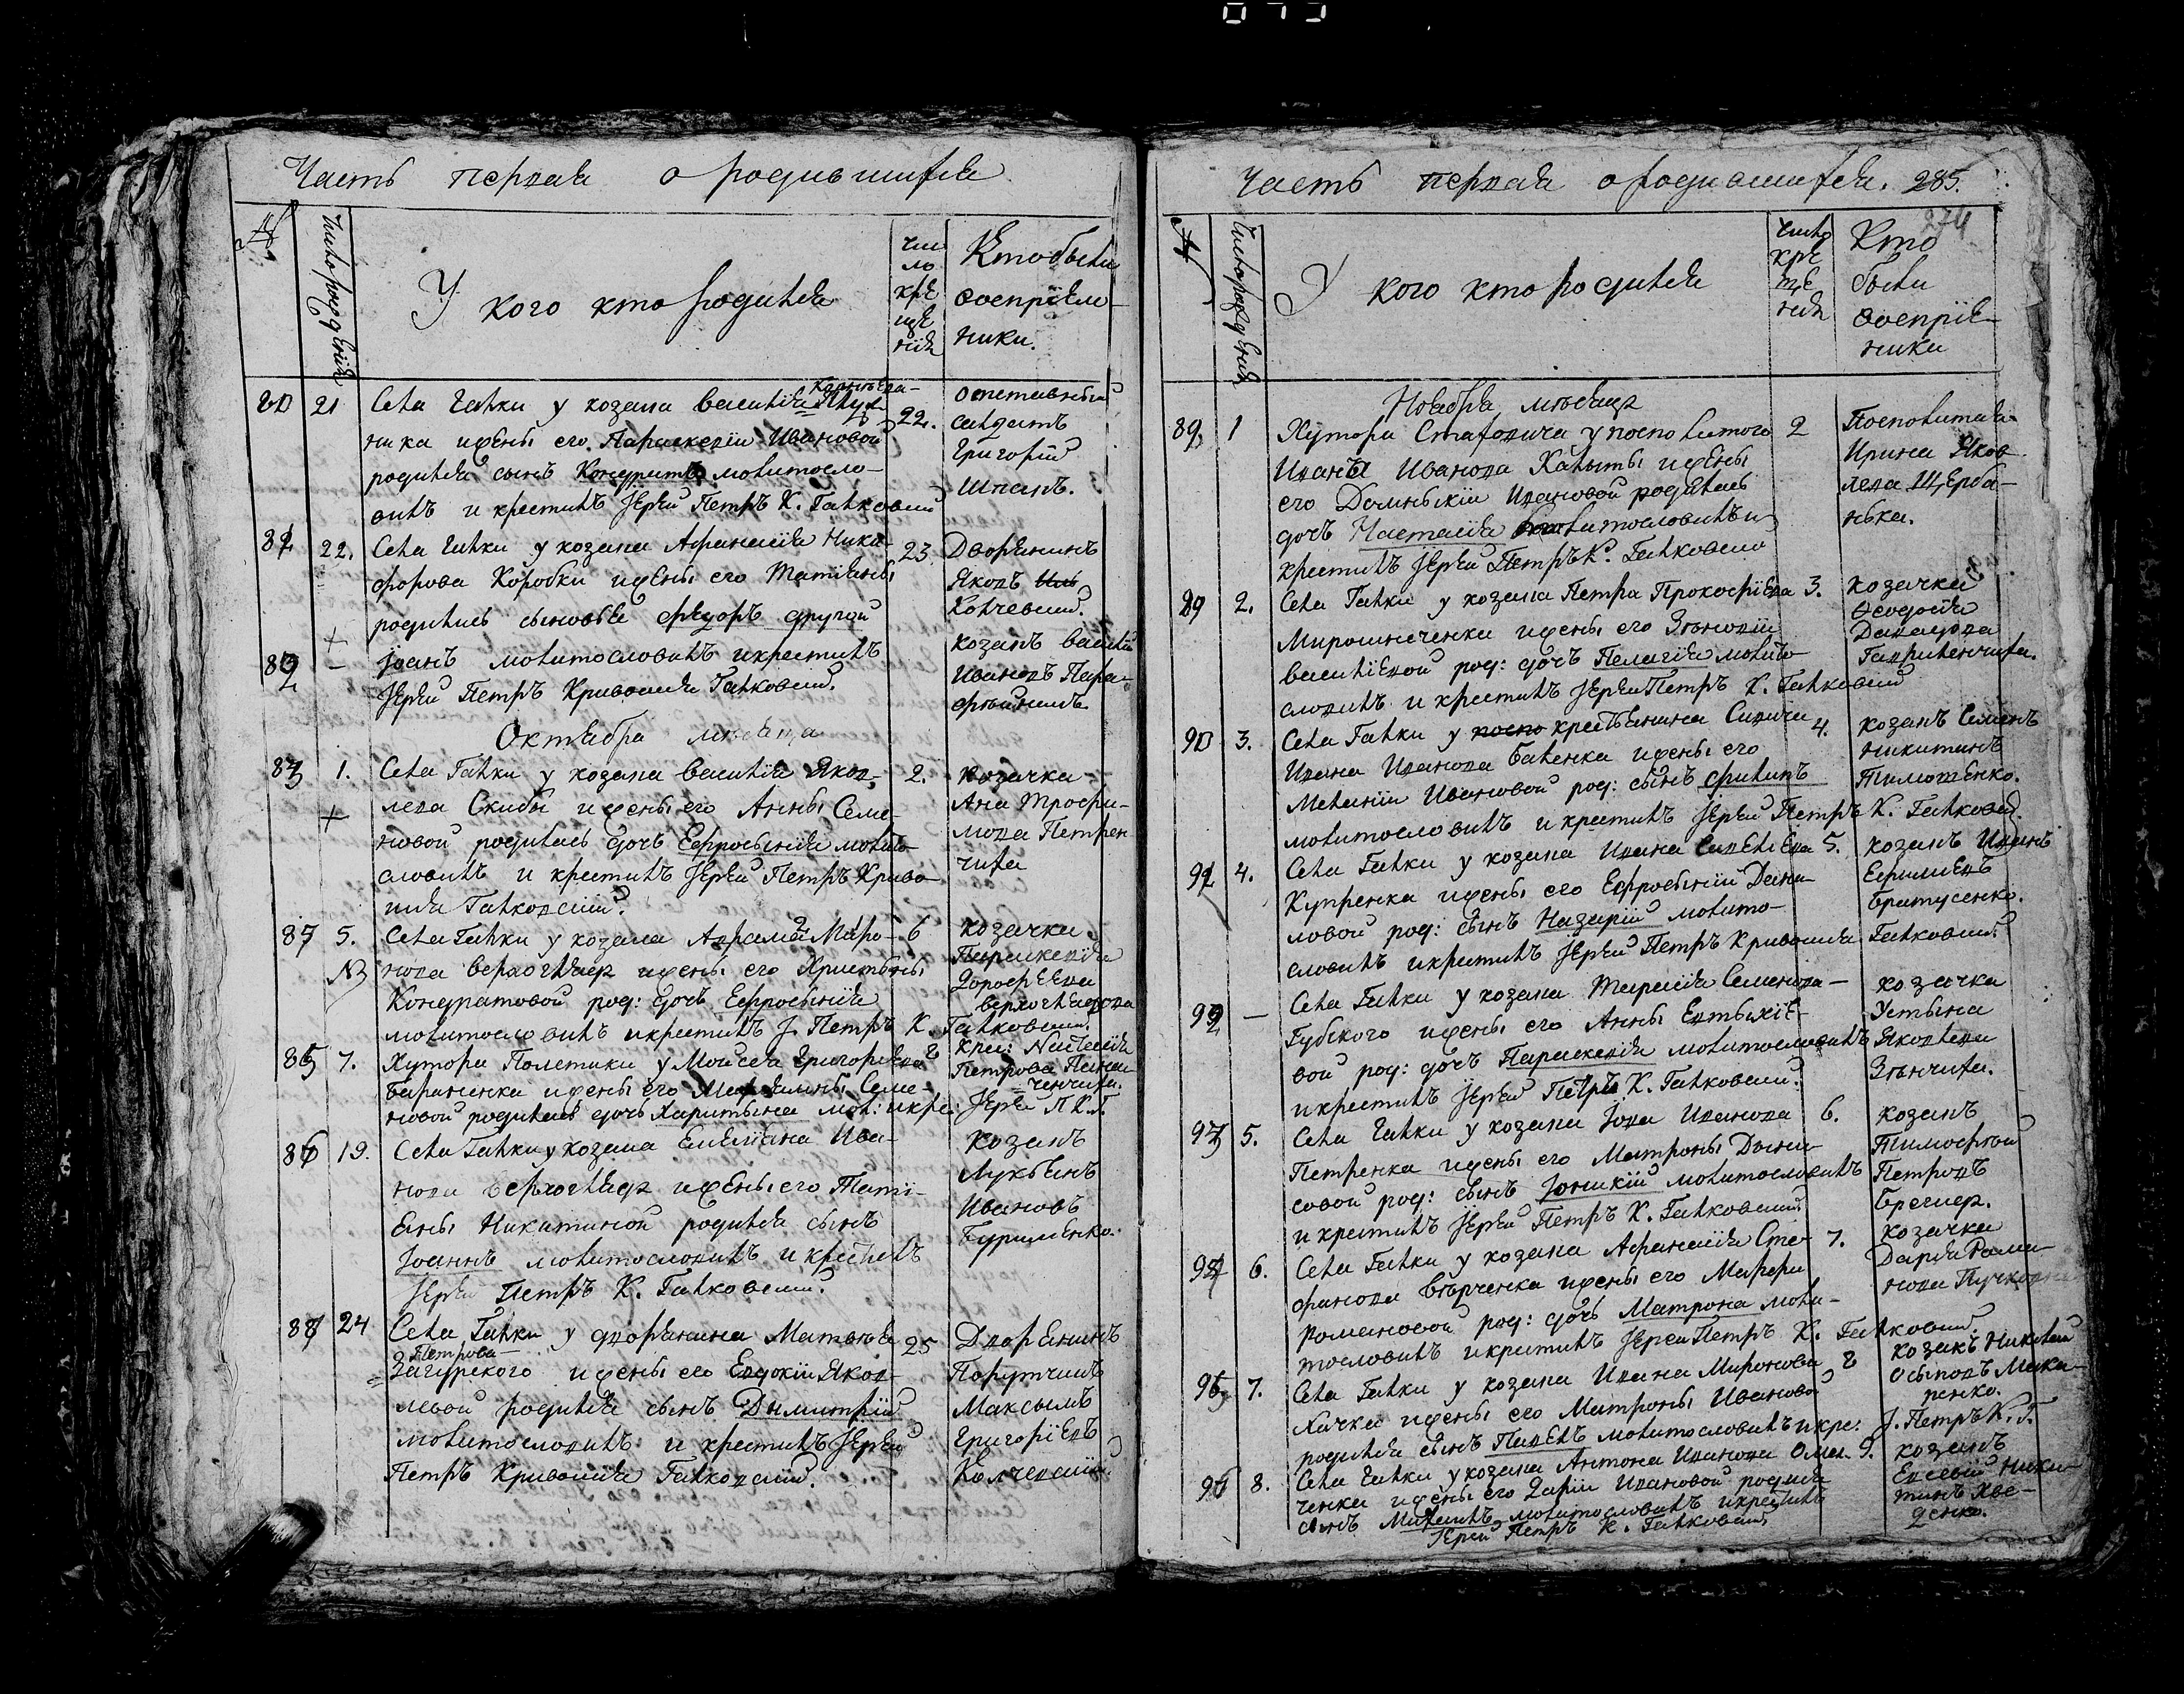 Часть первая о родившихся
№
Число рождения
У кого кто родился
чи
сло
кре
ще
нія
Кто были
воспріем
ники.
80 21 Села Галки у козака Василія
ника и жены его Параскевіи Ивановой
родился сынъ Кондратъ молитвосло-
вилъ и крестилъ Іерей Петръ К. Галковскій
22.
отставный
салдатъ
Григорій
Шпакъ.
22. Села Галки у козака Афанасія Ники-
форова Коробки и жены его Татіаны
родились сыновья Федоръ другой
Іоанъ молитвословилъ и крестилъ
Іерей Петръ Кривошия Галковский.
23.
Дворянинъ
Яковъ
Колчевский.
козакъ Василій
Ивановъ
Октября месяца
1. Села Галки у козака Василія Яков-
лева Скибы и жены его Анны Семе-
новой родилась дочь Ефросинія молитво-
словилъ и крестилъ Іерей Петръ Криво-
шия Галковский.
2.
козачка
Ана Трофи-
мова Петрен
чиха
5. Села Галки у козака Аврама Миро-
нова Верхогляда жены его Христины
Кондратовой род: дочь Ефросинія
молитвословилъ и крестилъ І. Петръ К. Галковский.
6
козачка
Параскевія
Дорофеева
7. Хутора Полетики у Моисея Григориева
Бараненка и жены его Семе-
новой родилась дочь Харитина мол: и кре: Іерей П. К. Г.
8
Петрова
86 19. Села Галки у козака Емелиана Ива-
нова Верхогляда и жены его Тати-
яны Никитиной родился сынъ
Іоаннъ молитвословилъ и крестилъ
Іерей Петръ К. Галковский.
козакъ
Лукьянъ
Ивановъ
Бурименко.
24 Села Галки у дворянина Матвея
Петрова
Загурского и жены его Евдокіи Яков-
левой родился сынъ Димитрій
молитвословилъ и крестилъ Іерей
Петръ Кривошия Галковский.
25
Дворянинъ
Порутчикъ
Максымъ
Григоріевъ
Колчевский.
Часть первая о родившихся. 285.
274
№
Число рождения
У кого кто родился
число
кре
ще
нія
Кто
были
воспріе-
ники
Ноября месяца
89 1 Хутора у посполитого
Ивана Иванова и жены
его Домникіи Ивановой родилась
дочь Настасія молитвословилъ и
крестилъ Іерей Петръ К. Галковский
2
Посполитая
Ирина Яков
лева Щерба-
нька.
89 2. Села Галки у козака Петра Прокофіева
Мирошниченка и жены его Зѣновіи
Василіевой род: дочь Пелагія молитво-
словилъ и крестилъ Іерей Петръ К. Галковский
3.
козачка
Феодосія
Давидова
Гавриленчиха.
90 3. Села Галки у крестьянина
Ивана Иванова и жены его
Меланіи Ивановой род: сынъ Филипъ
молитвословилъ и крестилъ Іерей Петръ К. Галковский.
4.
козакъ Семенъ
Никитинъ
Тимошенко.
4. Села Галки у козака Ивана Савелиева
Купренка и жены его Ефросиніи Дани-
ловой род: сынъ Назарій молитво-
словилъ и крестилъ Іерей Петръ Кривошия Галковский.
5.
козакъ Иванъ
Ефимиевъ
Братусенко.
Села Галки у козака Тарасія Семенова
Губского и жены его Анны Евтыхіе-
вой род: дочь Параскевія молитвословилъ
и крестилъ Іерей Петръ К. Галковский.
козачка
Устына
Яковлева
93 5. Села Галки у козака Іова Иванова
Петренка и жены его Матроны Дыони-
совой род: сынъ Іоникій молитвословилъ
и крестилъ Іерей Петръ К. Галковский.
6.
козакъ
Тимофей
Петровъ
6. Села Галки у козака Афанасія Сте-
фанова и жены его Марфы
Романовой род: дочь Матрона моли-
тословилъ и крестилъ Іерей Петръ К. Галковский.
7.
козачка
Дарія Рома
нова
95 7. Села Галки у козака Ивана Миронова
Хачка и жены его Матроны Ивановой
родился сынъ Павелъ молитвословилъ и кре: І. Петръ К. Г.
8
козакъ Николай
Осыповъ Мака-
ренко.
96 8. Села Галки у козака Антона Иванова Омел-
ченка и жены его Дарiи Ивановой родился
сынъ Михаилъ молитвословилъ и крестилъ
Іерей Петръ К. Галковский
9.
козакъ
Евсевій Ники-
тинъ Хве-
денко.